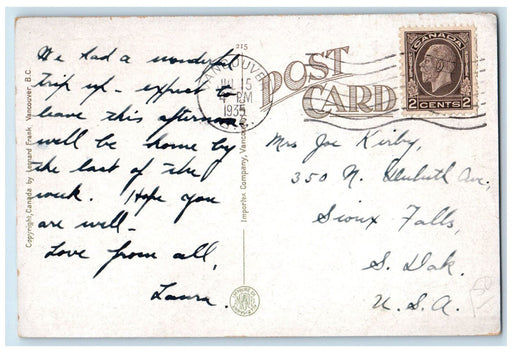 We had a wonderful
trip up - expect to
leave this afternoon
will be home by
the last of the
week. Hope you
are well -
Love from all,
Laura.
Copyright, Canada by Leonard Frank, Vancouver, B.C.
215
VANCOUVER
15
4 PM
1935
B.C.
POST
CARD
CANADA
2 CENTS 2
Importex Company, Vancouver
Mrs Joe Kirby,
350 N. Duluth Ave,
Sioux Falls,
S. Dak.
U.S.A.